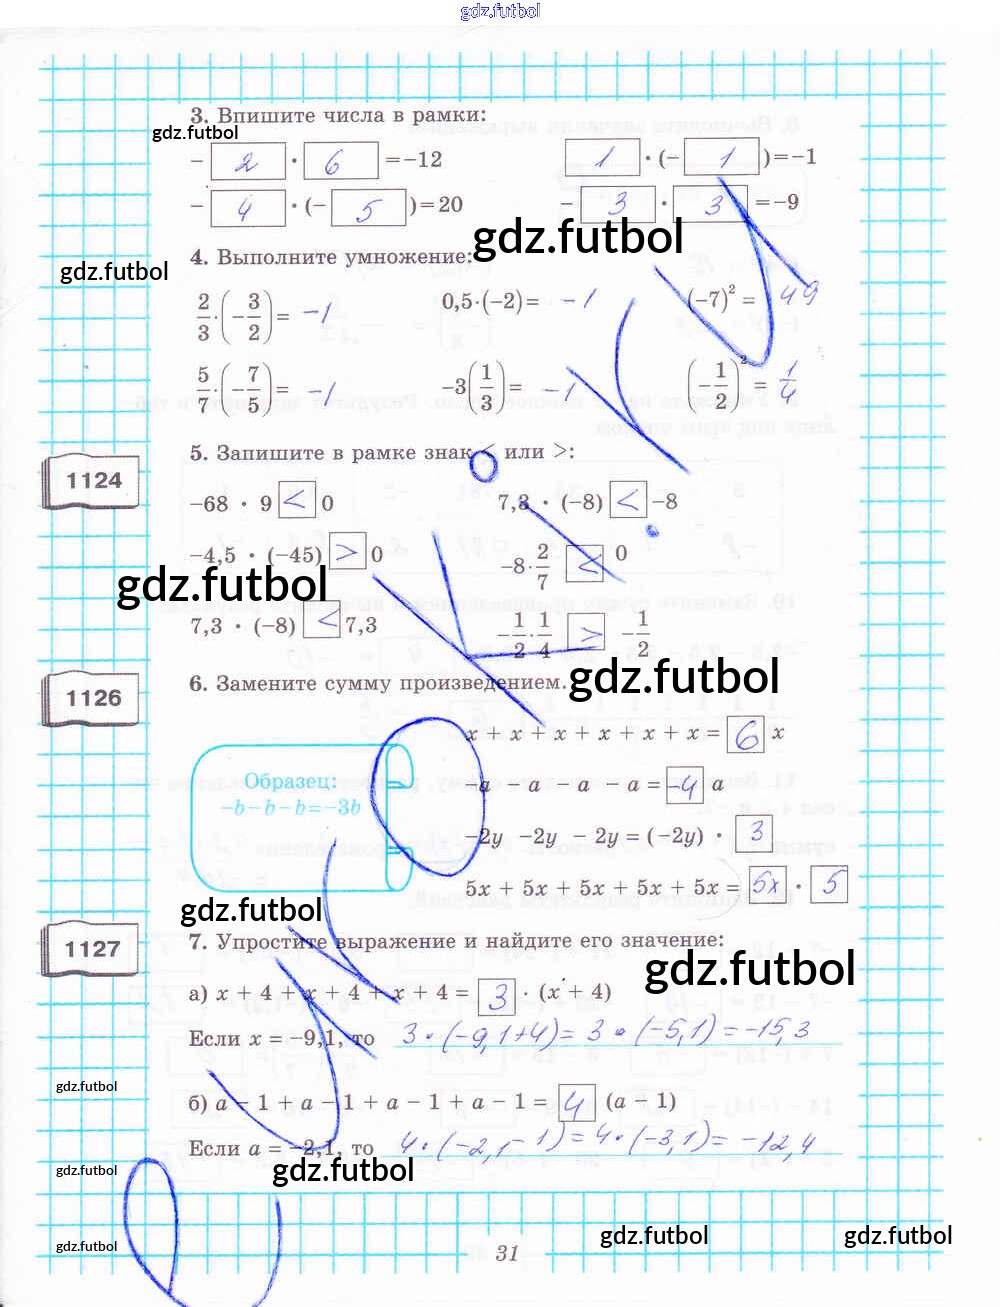 gdz.futbol
3. Впишите числа в рамки:
gdz.futbol
− 2 · 6 =−12 1 · (− 1 )=−1
− 4 · (− 5 )=20 − 3 · 3 =−9
gdz.futbol
4. Выполните умножение:
gdz.futbol
2/3·(−3/2)= −1 0,5·(−2)= −1 (−7)² = 49
5/7·(−7/5)= −1 −3(1/3)= −1 (−1/2)² = 1/4
5. Запишите в рамке знак < или >:
1124
−68 · 9 < 0 7,3 · (−8) < −8
−4,5 · (−45) > 0 −8·2/7 < 0
gdz.futbol
7,3 · (−8) < 7,3 −1/2·1/4 > −1/2
gdz.futbol
6. Замените сумму произведением.
1126
x + x + x + x + x + x = 6 x
Образец:
−b−b−b=−3b
−a − a − a − a = −4 a
−2y −2y − 2y = (−2y) · 3
5x + 5x + 5x + 5x + 5x = 5x · 5
gdz.futbol
7. Упростите выражение и найдите его значение:
1127
gdz.futbol
а) x + 4 + x + 4 + x + 4 = 3 · (x + 4)
Если x = −9,1, то 3·(−9,1+4)= 3·(−5,1)=−15,3
gdz.futbol
б) a − 1 + a − 1 + a − 1 + a − 1 = 4 (a − 1)
Если a = −2,1, то 4·(−2,1−1)=4·(−3,1)=−12,4
gdz.futbol
gdz.futbol
gdz.futbol
gdz.futbol
gdz.futbol
31